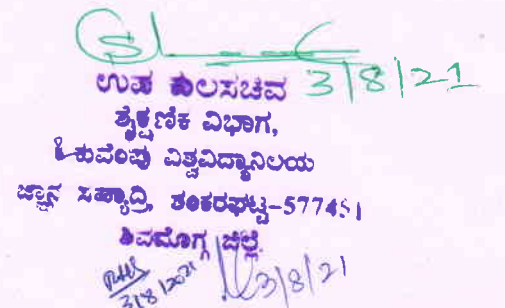 3/8/21
ಉಪ ಕುಲಸಚಿವ
ಶೈಕ್ಷಣಿಕ ವಿಭಾಗ,
ಕುವೆಂಪು ವಿಶ್ವವಿದ್ಯಾನಿಲಯ
ಜ್ಞಾನ ಸಹ್ಯಾದ್ರಿ, ಶಂಕರಘಟ್ಟ-577451
ಶಿವಮೊಗ್ಗ ಜಿಲ್ಲೆ.
3/8/2021 3/8/21